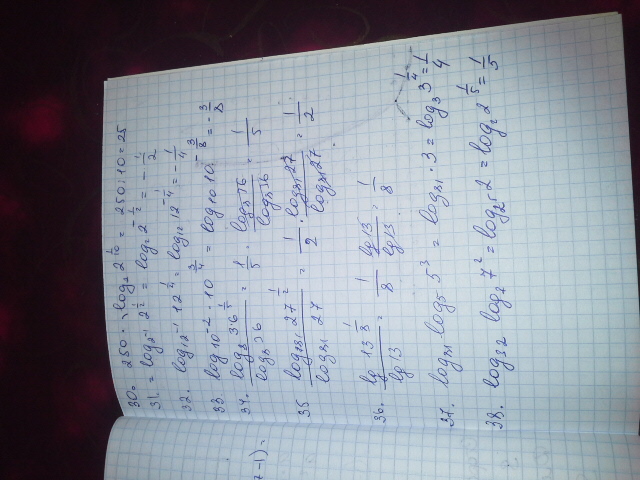 30. 250 · log₂ 2^(1/10) = 250 : 10 = 25
31. = log₂₋₁ 2^(1/2) = log₂ 2^(-1/2) = -1/2
32. log₁₂₋₁ 12^(1/4) = log₁₂ 12^(-1/4) = -1/4
33. log 10⁻² · 10^(3/4) = log₁₀ 10^(-3/8) = -3/8
34. log₃ 36^(1/5) / log₃ 36 = 1/5 · log₃ 36 / log₃ 36 = 1/5
35 log₂₃₁ 27^(1/2) / log₂₃₁ 27 = 1/2 · log₂₃₁ 27 / log₂₃₁ 27 = 1/2
36. lg 13^(1/8) / lg 13 = 1/8 lg 13 / lg 13 = 1/8
37. log₈₁ log₅ 5³ = log₈₁ · 3 = log₃ 3^(1/4) = 1/4
38. log₃₂ log₇ 7² = log₂₅ 2 = log₂ 2^(1/5) = 1/5
7-1) =